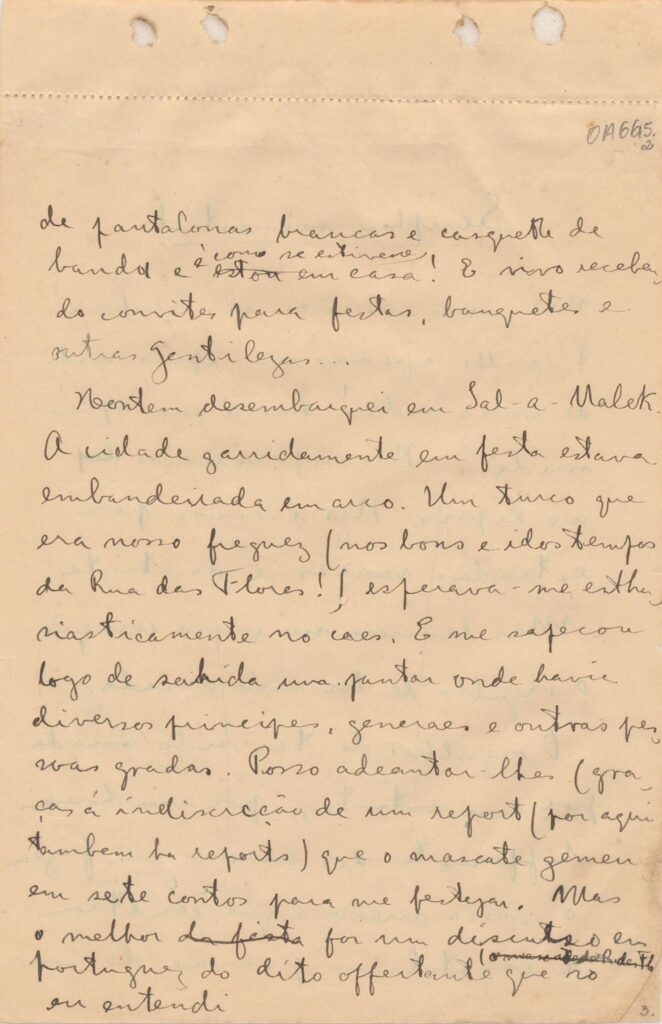 OA665.
2
de pantalonas brancas e casquette de
é como se estivesse
banda e estou em casa! E vivo receben-
do convites para festas, banquetes e
outras gentilezas...
Hontem desembarquei em Sal-a-Malek.
A cidade garridamente em festa estava
embandeirada em arco. Um turco que
era nosso freguez (nos bons e idos tempos
da Rua das Flores!) esperava-me esthu-
siasticamente no caes. E me safecou
logo de sahida um jantar onde havia
diversos principes, generaes e outras pes-
soas gradas. Posso adeantar-lhes (gra-
ças á indiscrecção de um report (por aqui
tambem ha reports) que o mascate gemeu
em sete contos para me festejar. Mas
o melhor da festa foi um discurso em
portuguez do dito offertante que só
eu entendi
3.